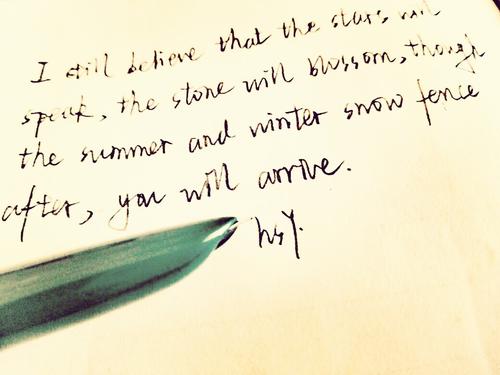 I still believe that the stars will
speak, the stone will blossom, though
the summer and winter snow fence
after, you will arrive.
hsy.